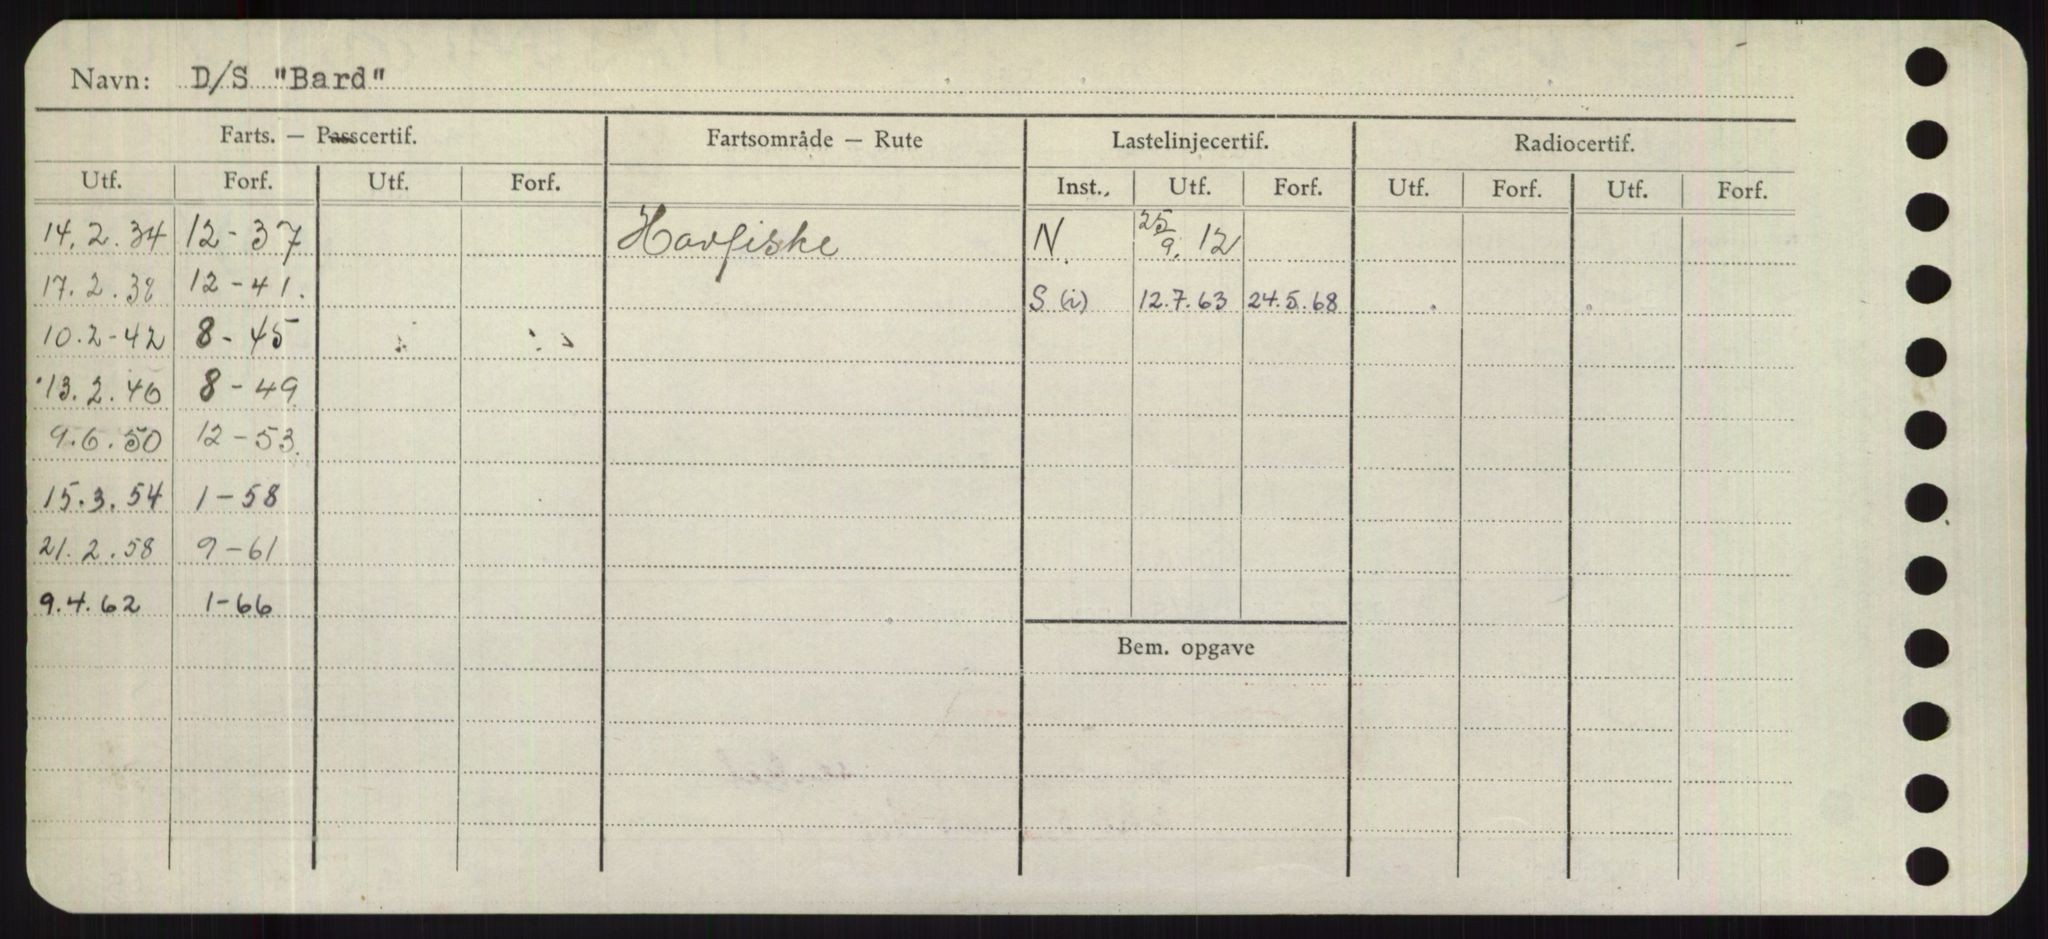 Navn: D/S "Bard"
Farts. — Passcertif. Fartsområde — Rute Lastelinjecertif. Radiocertif.
Utf. Forf. Utf. Forf. Inst. Utf. Forf. Utf. Forf. Utf. Forf.
14.2.34 12-37 Havfiske N. 25/9.12
17.2.38 12-41. S (i) 12.7.63 24.5.68
10.2-42 8-45
13.2.46 8-49
9.6.50 12-53.
15.3.54 1-58
21.2.58 9-61
9.4.62 1-66
Bem. opgave